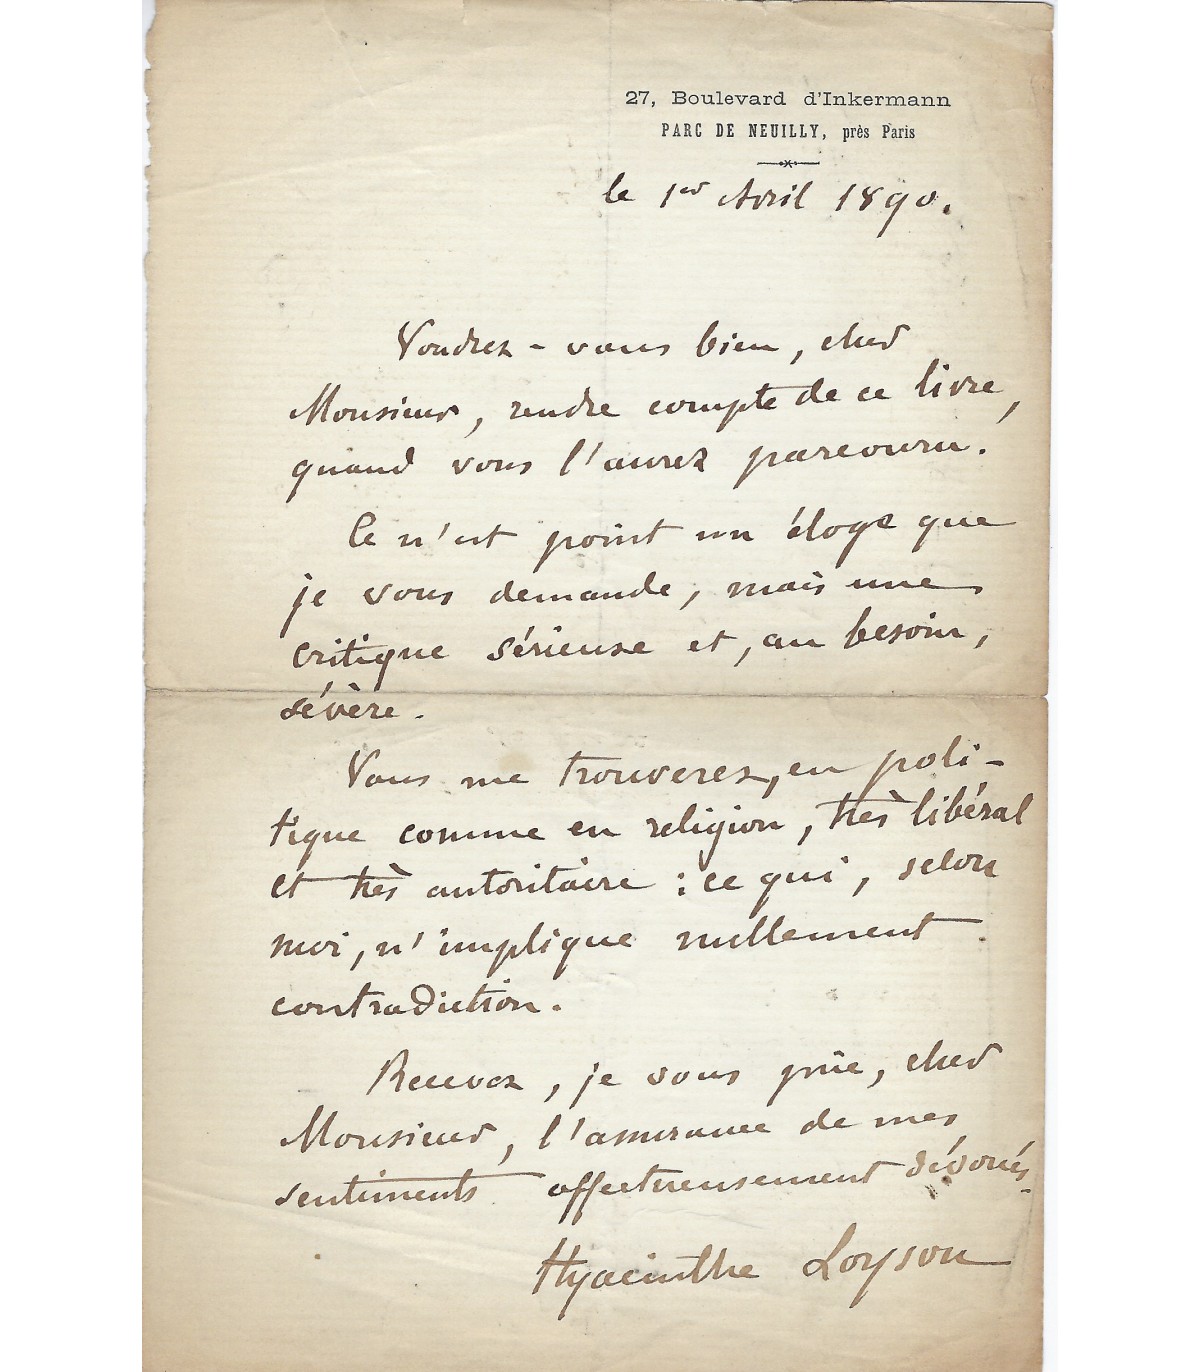 27, Boulevard d'Inkermann
PARC DE NEUILLY, près Paris
le 1er Avril 1890.
Voudrez-vous bien, cher
Monsieur, rendre compte de ce livre,
quand vous l'aurez parcouru.
Ce n'est point un éloge que
je vous demande, mais une
critique sérieuse et, au besoin,
sévère.
Vous me trouverez, en poli-
tique comme en religion, très libéral
et très autoritaire : ce qui, selon
moi, n'implique nullement
contradiction.
Recevez, je vous prie, cher
Monsieur, l'assurance de mes
sentiments affectueusement dévoués.
Hyacinthe Loyson